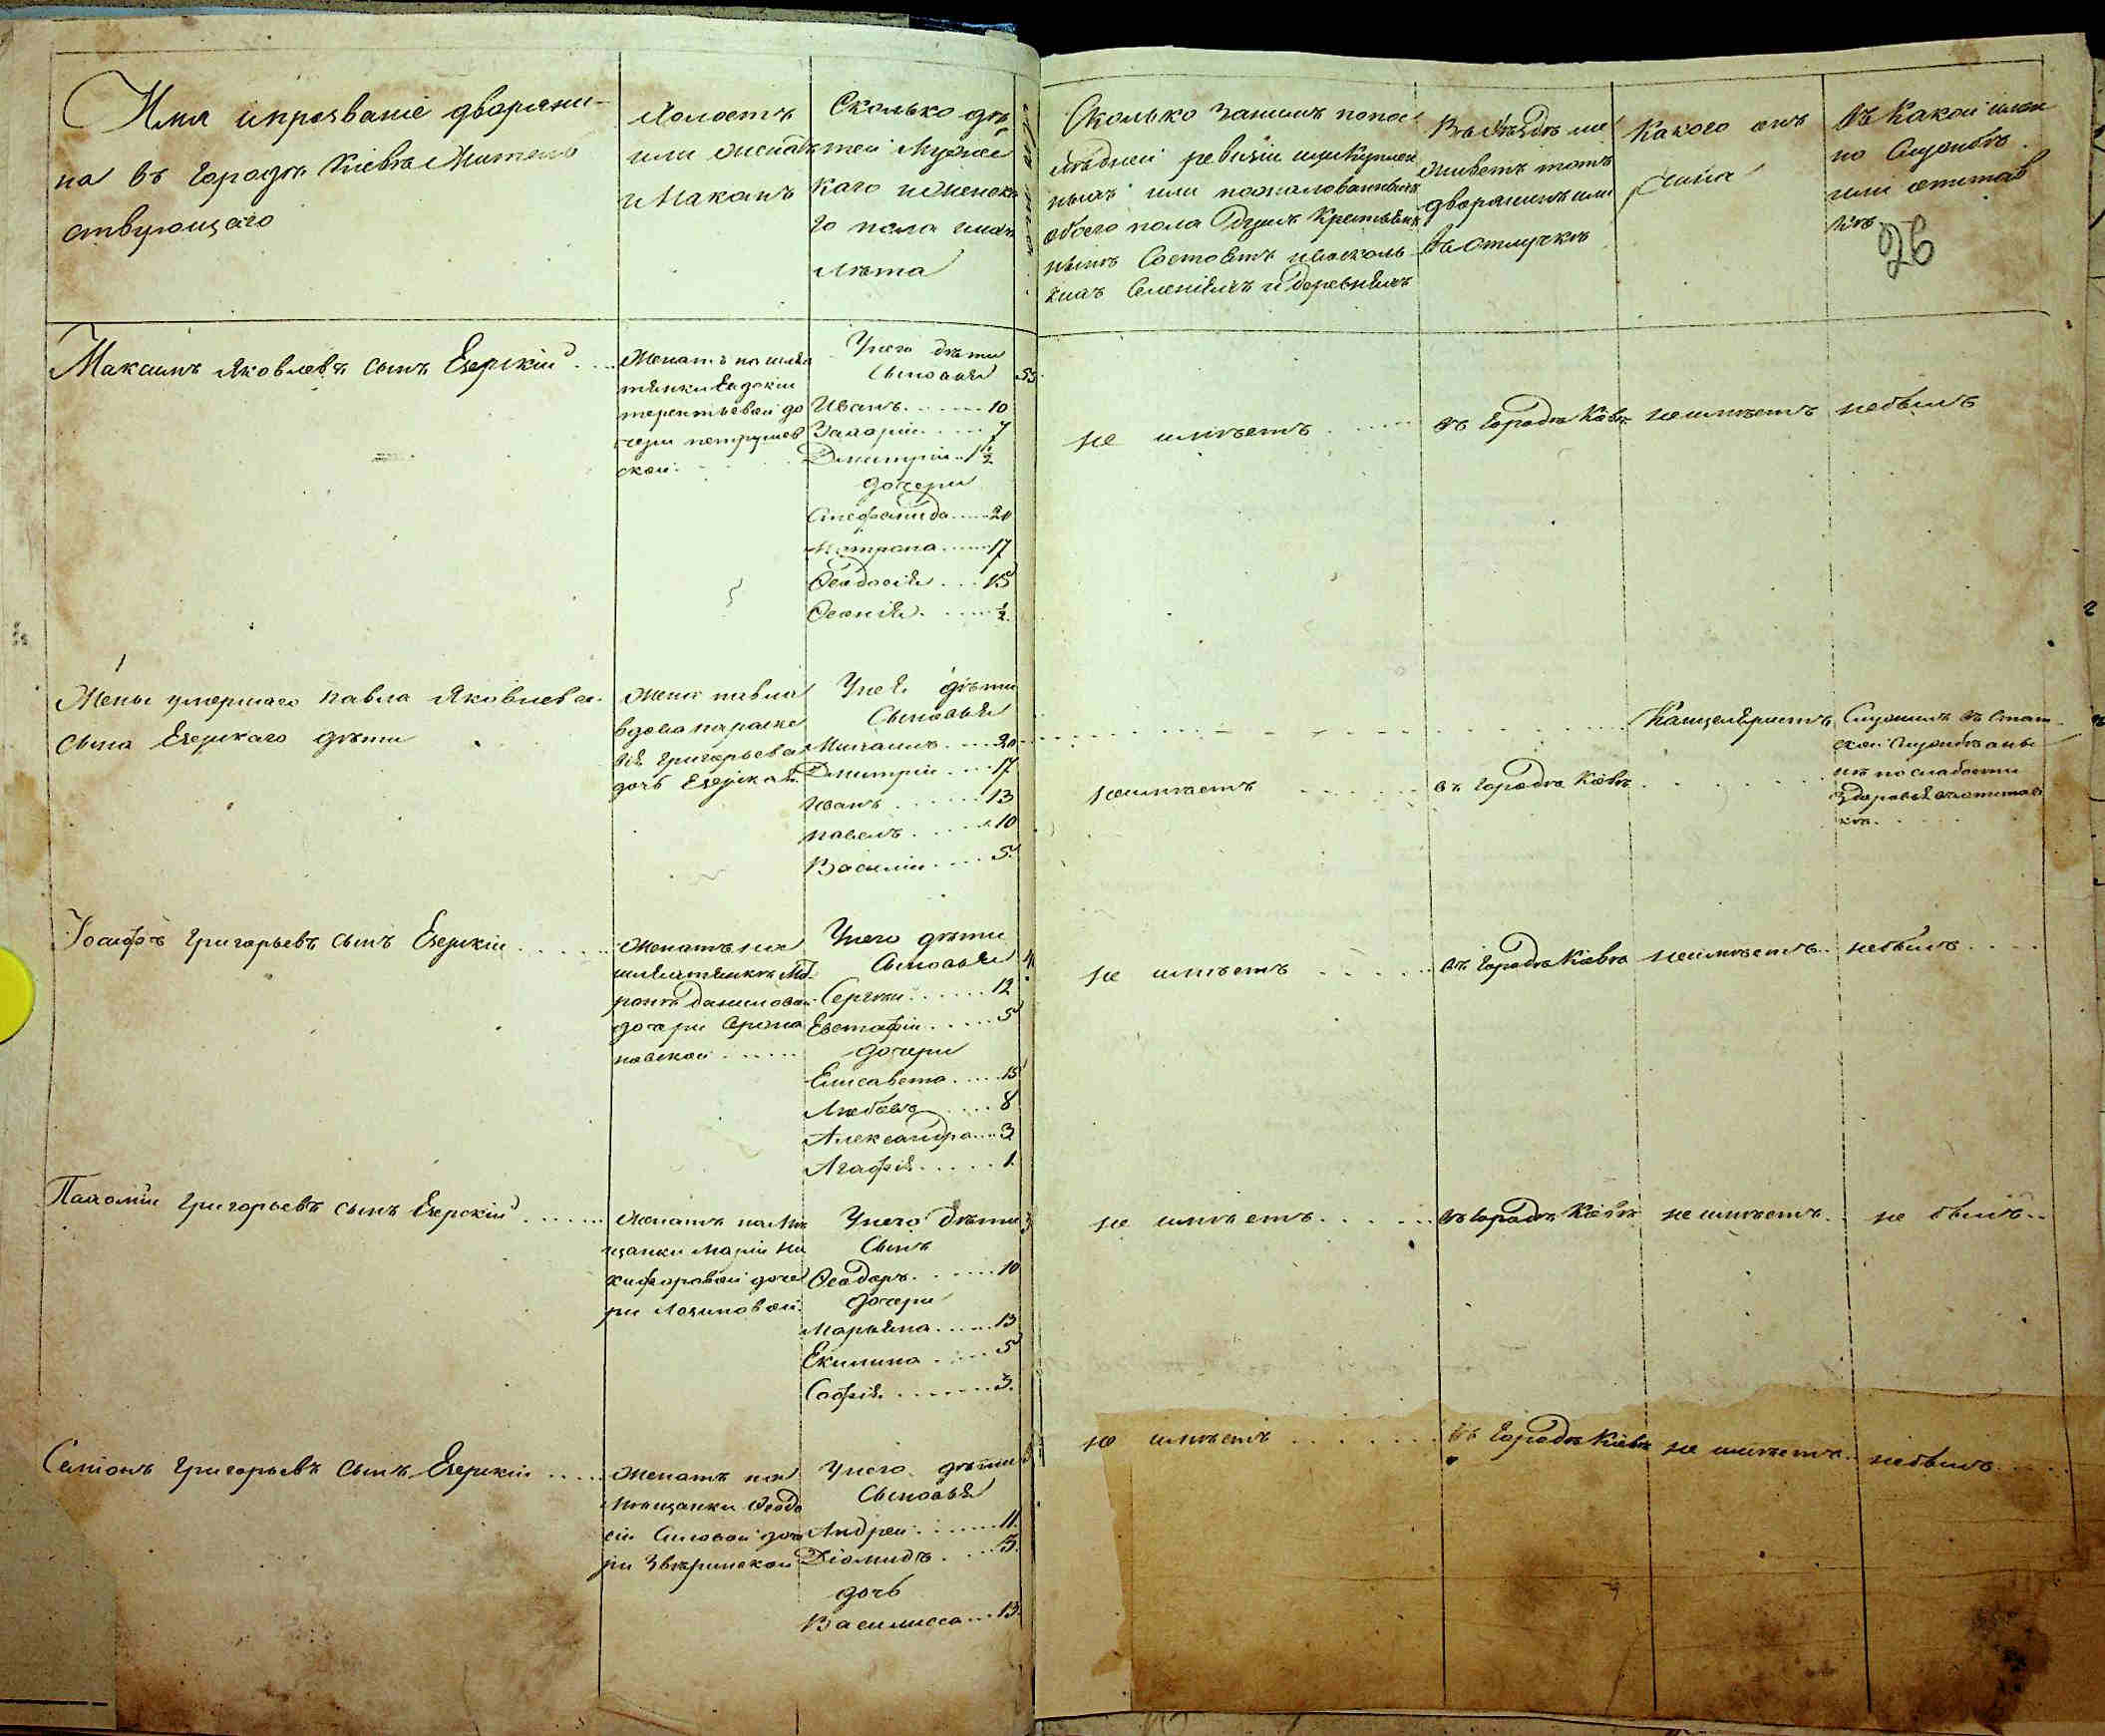 Имя ипрозваніе дворяни-
на въ городѣ Кіевѣ жител
ствующаго
Холостъ
или женатъ
инакомъ
Сколько дѣ
тей мужес
каго иженска
го пола имѣ
лѣта
Сколько занимъ попос
лѣдней ревизіи иликуплен
ныхъ или пожалованныхъ
обоего пола душъ крестьян
нынѣ состоитъ ивъсколь
кихъ селеніяхъ идеревняхъ
Въуѣздѣ ли
живетъ тотъ
дворянинъ или
въотлучкѣ
Какого онъ
чина
Въ какой имен
но службѣ
или отстав
кѣ
26
Максимъ Яковлевъ сынъ Езерскій
Женатъ на шлях
тянки Евдокіи
терентьевой до
чери петрушев
ской
Унего дѣти
сыновья
Иванъ 10
Захарій 7
Дмитрій 1 1/2
дочери
Стефанида 20
Мотрона 17
Феодосія 15
Ксенія 1/2
53
не имѣетъ
въ городѣ Кіевѣ
неимѣетъ
небылъ
Жены умершаго павла Яковлева
сына Езерскаго дѣти
Жена павла
вдова параске
вія григорьева
дочь Езерская
Унея дѣти
Сыновья
Михаилъ 20
Дмитрій 17
Иванъ 13
павелъ 10
Василій 5
Канцеляристъ
Служилъ въ стат
ской службѣ аны
нѣ по слабости
здоровья вотстав
кѣ
неимѣетъ
въ городѣ Кіевѣ
Іосифъ григорьевъ сынъ Езерскій
Женатъ на
шляхтянкѣ Мат
ронѣ даниловой
дочери
новской
Унего дѣти
Сыновья
Сергѣй 12
Евстафій 5
дочери
Елисавета 15
Любовь 8
Александра 3
Агафія 1
не имѣетъ
въ городѣ Кіевѣ
неимѣетъ
небылъ
Пахомій григорьевъ сынъ Езерскій
Женатъ на мѣ
щанки маріи ни
кифоровой доче
ри
Унего дѣти
Сынъ
Феодоръ 10
дочери
Марьяна 13
Екилина 5
Софія 3
не имѣетъ
въ городѣ Кіевѣ
не имѣетъ
не былъ
Симіонъ григорьевъ сынъ Езерскій
Женатъ на
мѣщанки Феодо
сіи Симовой доче
ри Звѣринской
Унего дѣти
Сыновья
Андрей 11
Діомидъ 5
дочь
Василисса 13
не имѣетъ
въ городѣ Кіевѣ
не имѣетъ
небылъ